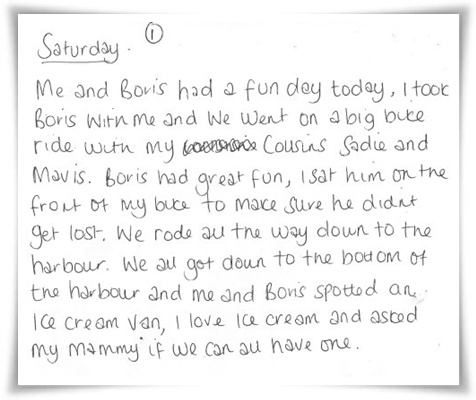 Saturday. 1
Me and Boris had a fun day today, I took
Boris with me and we went on a big bike
ride with my Cousins Sadie and
Mavis. Boris had great fun, I sat him on the
front of my bike to make sure he didnt
get lost. We rode all the way down to the
harbour. We all got down to the bottom of
the harbour and me and Boris spotted an
Ice cream van, I love Ice cream and asked
my Mammy if we can all have one.